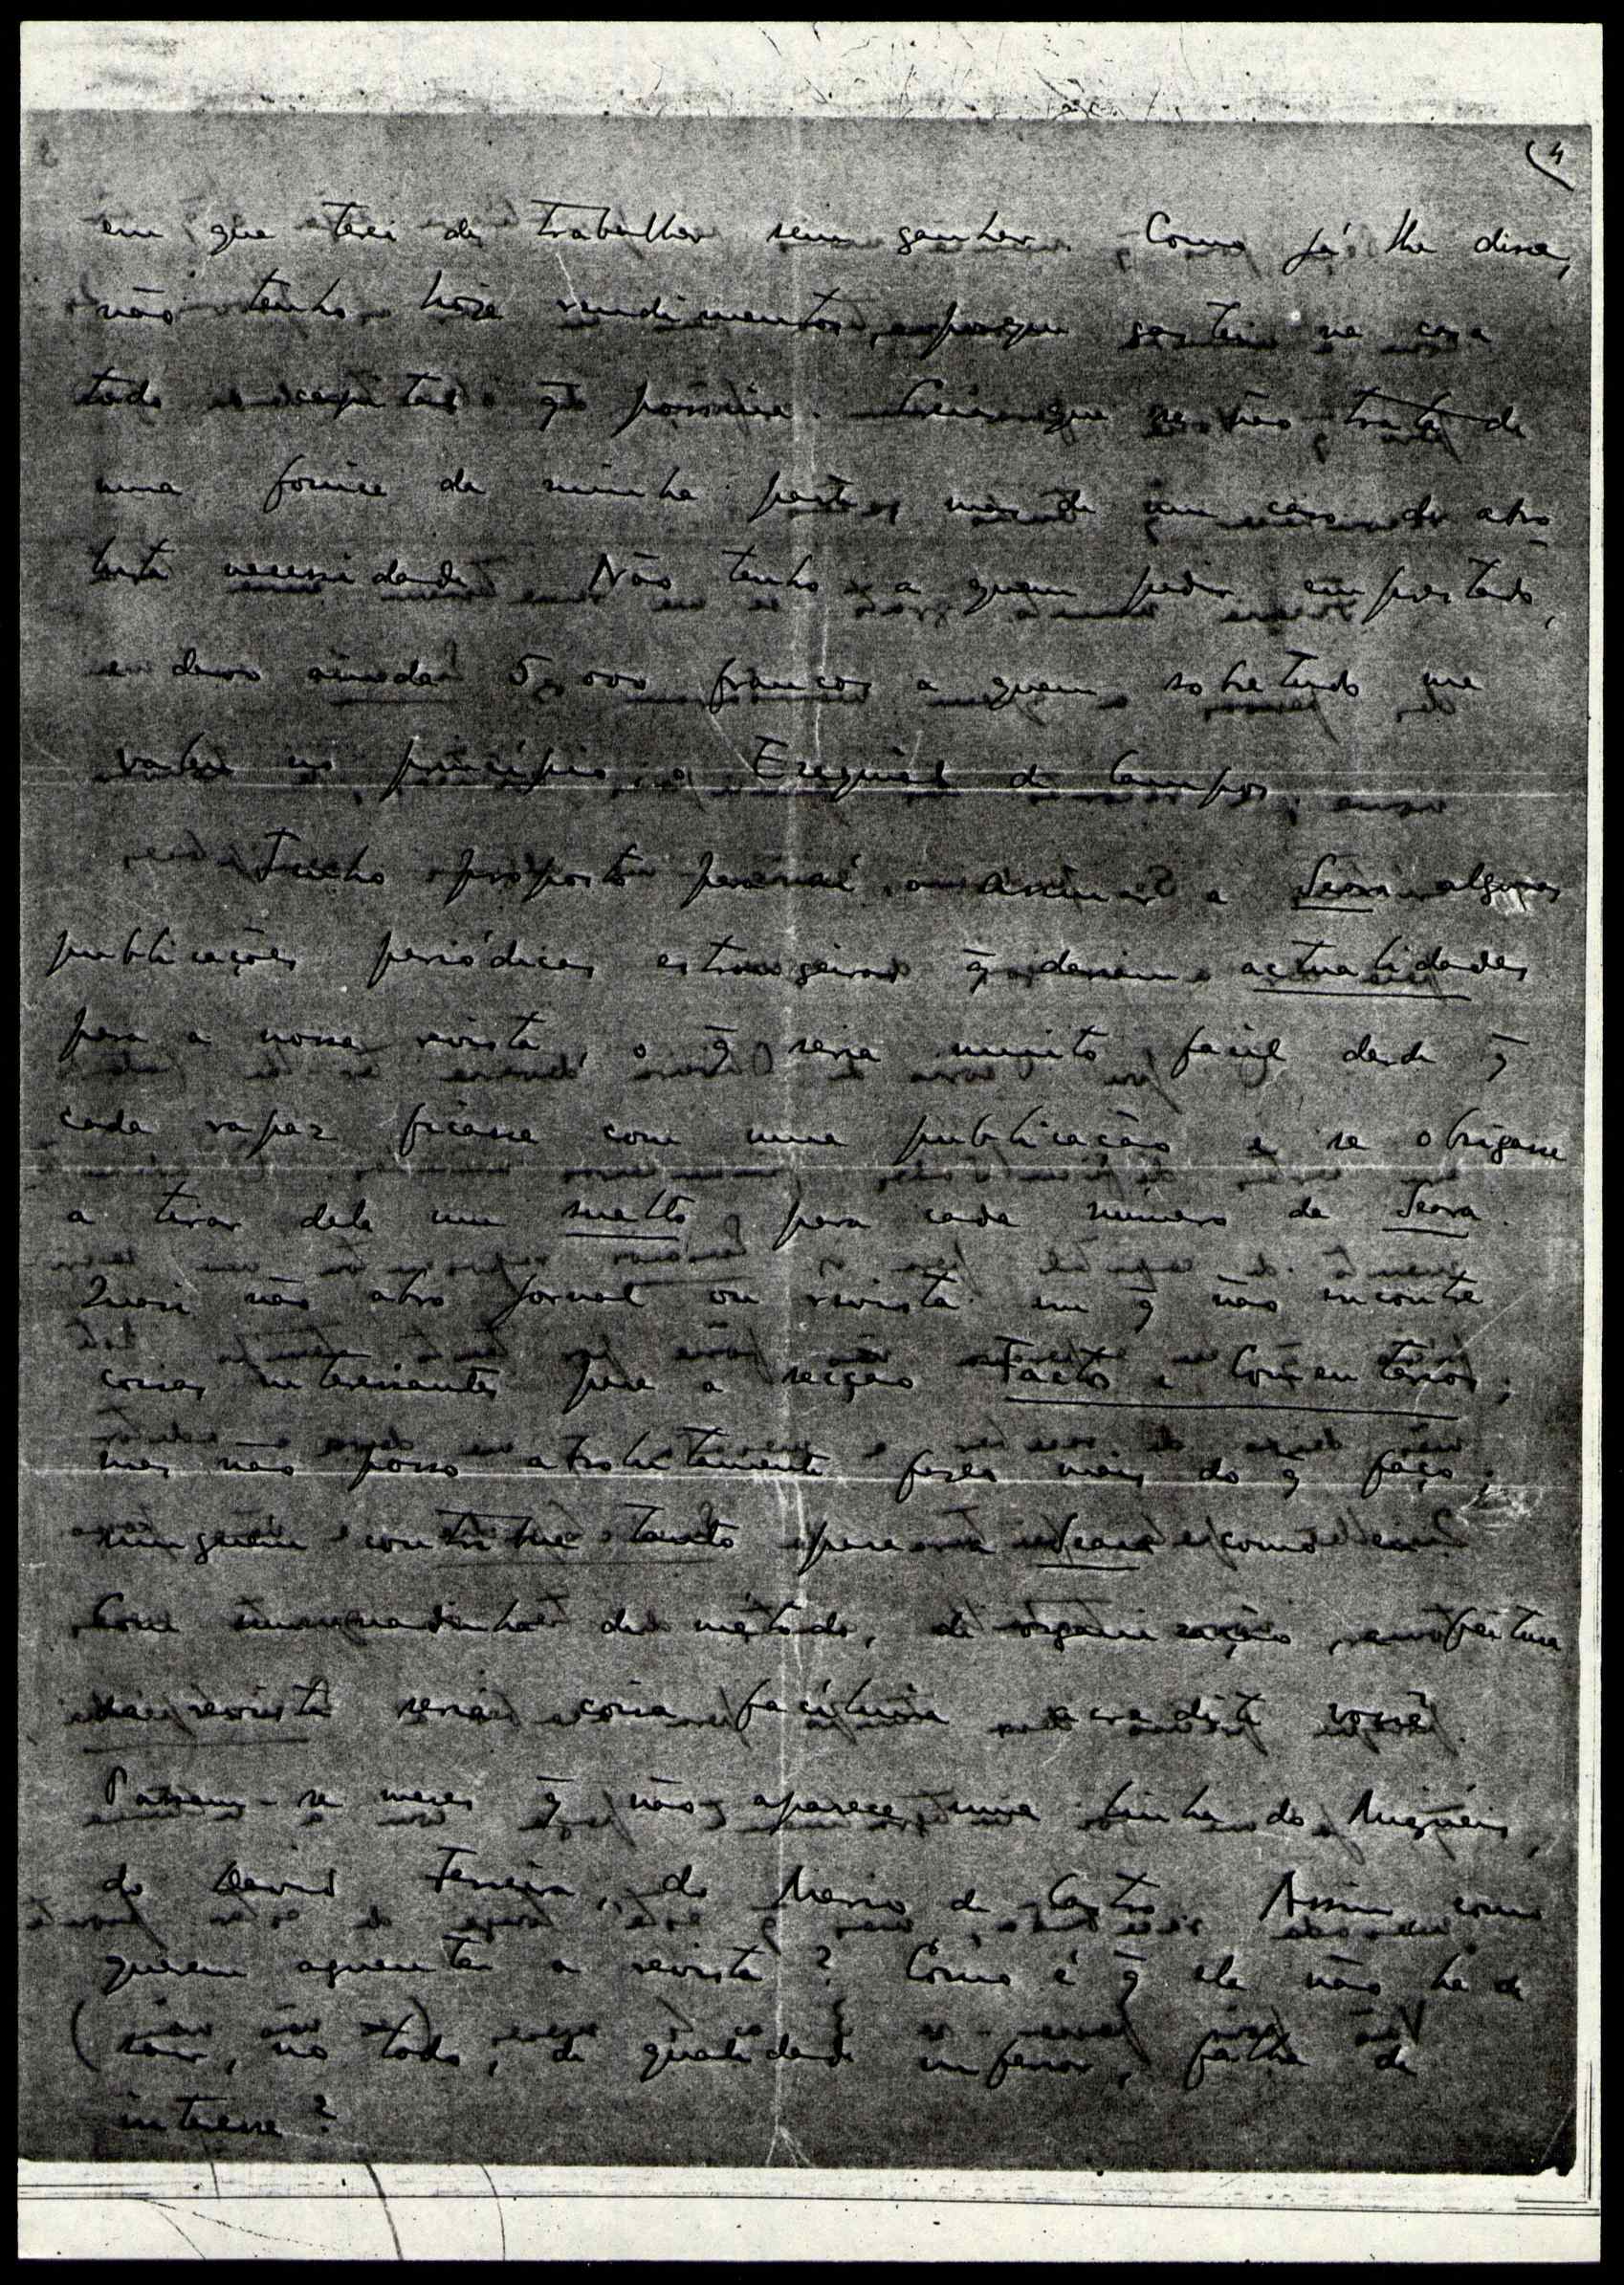 (4
em que terei de trabalhar sem ganhar. Como já lhe disse,
não tenho hoje rendimentos, porque gastei na casa
todo o capital q̃ possuia. que se não trata de
uma da minha parte, mas de um caso de abso-
luta necessidade. Não tenho a quem pedir emprestado,
e devo ainda 5.000 francos a quem sobretudo me
valeu no princípio, o Ezequiel de Campos.
Tenho proposto assinar a Seara algumas
publicações periódicas estrangeiras q̃ dariam actualidades
para a nossa revista, o q̃ seria muito facil desde q̃
cada rapaz ficasse com uma publicação e se obrigasse
a tirar dela um suelto para cada número da Seara.
Quasi não abro jornal ou revista em q̃ não encontre
coisas interessantes para a secção Factos e Comentários;
mas não posso absolutamente fazer mais do q̃ faço;
ninguém contribue tanto para a Seara como eu.
Com de método, de organização, a feitura
da revista seria coisa facílima acredite você.
Passam-se meses q̃ não aparece uma linha do Miguéis,
do David Ferreira, do Mario de Castro. Assim como
querem aguentar a revista? Como é q̃ ela não há de
sair, no todo, de qualidade inferior, falha de
interesse?